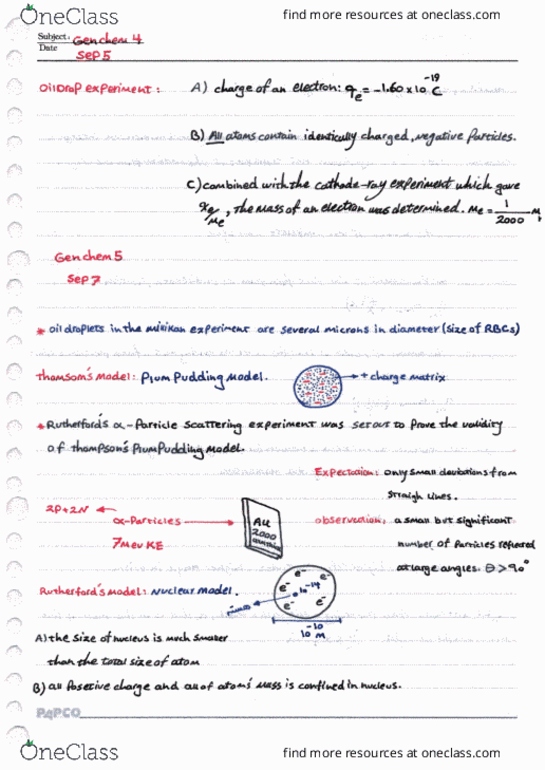 OneClass
find more resources at oneclass.com
Subject: Genchem 4
Date Sep 5
oilDrop experiment: A) charge of an electron: qe = -1.60 x 10^-19 C
B) All atoms contain identically charged, negative particles.
C) combined with the cathode-ray experiment which gave
/me, the mass of an electron was determined. Me = 1/2000 M
Genchem 5
Sep 7
* oil droplets in the millikan experiment are several microns in diameter (size of RBCs)
Thomson's Model: Plum Pudding Model. → + charge matrix
* Rutherford's α-Particle scattering experiment was set out to Prove the validity
of Thompson's Plum Pudding Model.
Expectation: only small deviations from
straigh lines.
2P+2N ←
α-Particles → Au 2000
7 Mev KE
observation: a small but significant
number of Particles reflected
at large angles. θ > 90°
Rutherford's Model: Nuclear model.
e- e- e- e- e- 10^-14
10^-10 m
A) the size of nucleus is much smaller
than the total size of atom
B) all positive charge and all of atom's mass is confined in nucleus.
PAPCO
OneClass
find more resources at oneclass.com